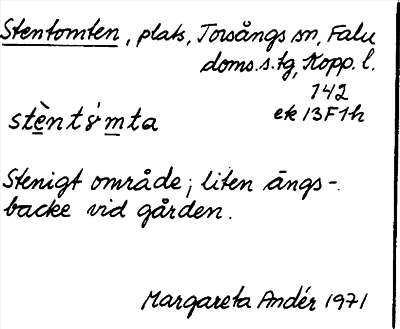 Stentomten, plats, Torsångs sn, Falu
doms.s.tg, Kopp. l.
142
ek 13F1h
stènts̀mta
Stenigt område; liten ängs-
backe vid gården.
Margareta Andér 1971